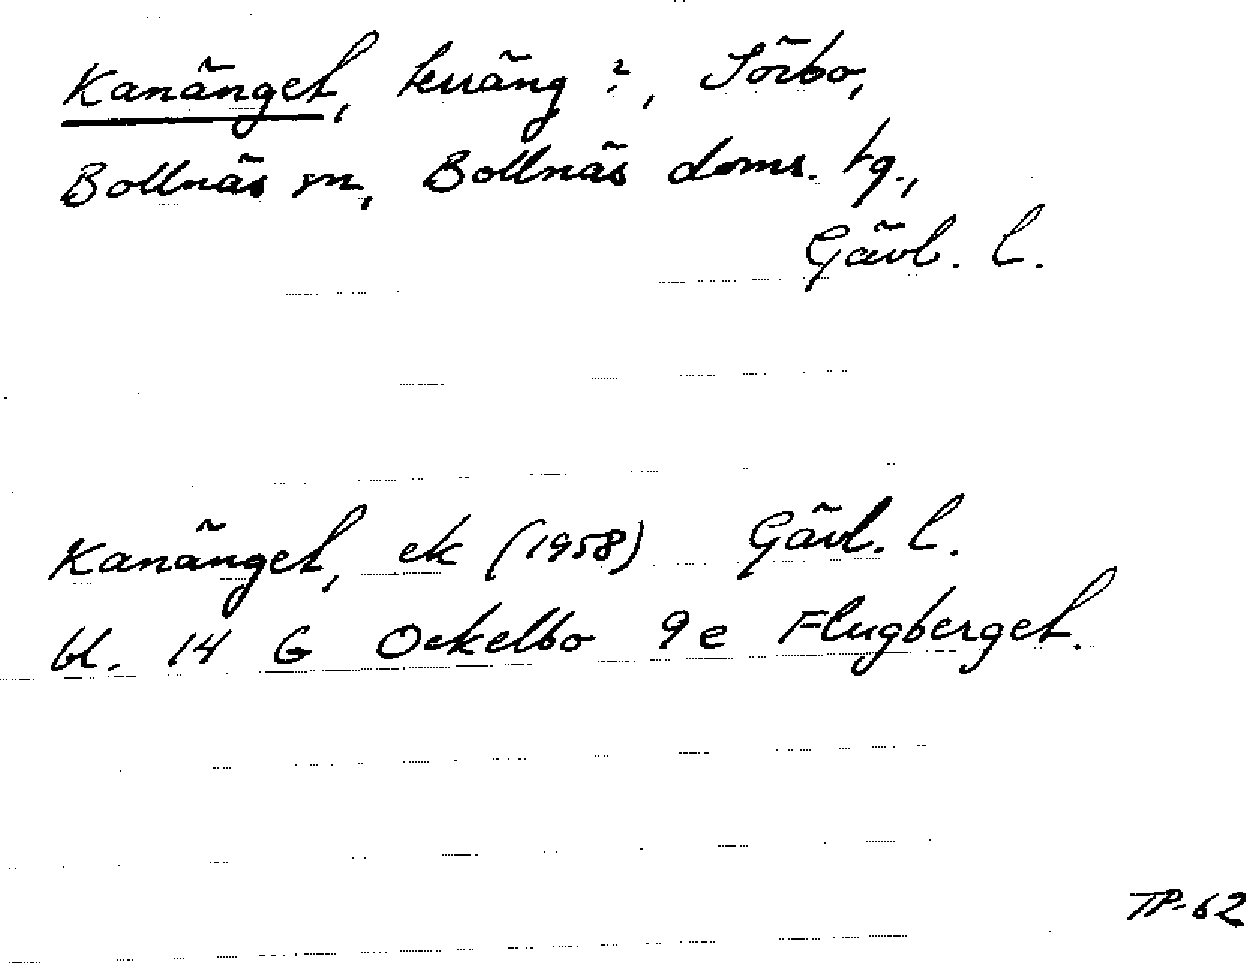 Kanänget, terräng ?, Sörbo,
Bollnäs sn, Bollnäs doms. tg.,
Gävl. l.
Kanänget, ek (1958) Gävl. l.
bl. 14 G Ockelbo 9 e Flugberget.
TP-62